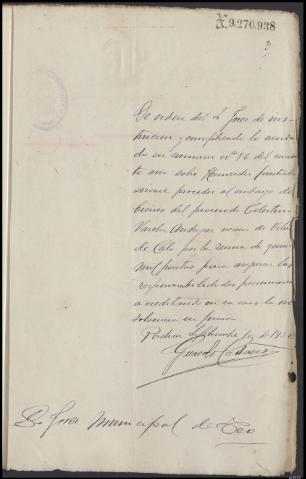 X 9.270.938
3
De orden del Sr Juez de ins-
trucción y cumpliendo lo acorda-
do en sumario nº 86 del corrien-
te año sobre Homicidio frustrado
sírvase proceder al embargo de
bienes del procesado Celestino
Varela vecino de
de Calo por la suma de quince
mil pesetas para asegurar las
responsabilidades pecuniarias
o acreditando en su caso la in-
solvencia en forma
Padron Septiembre de 193
Sr Juez Municipal de Teo